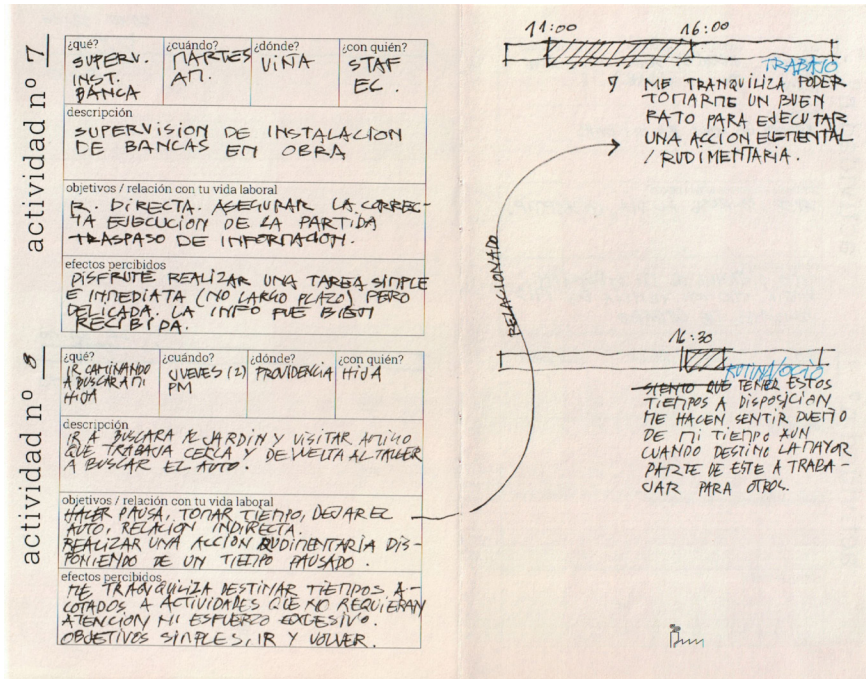 actividad nº 7
¿qué?
SUPERV.
INST.
BANCA
¿cuándo?
MARTES
AM.
¿dónde?
VIÑA
¿con quién?
STAF
EC.
descripción
SUPERVISION DE INSTALACION
DE BANCAS EN OBRA
objetivos / relación con tu vida laboral
R. DIRECTA. ASEGURAR LA CORREC-
TA EJECUCION DE LA PARTIDA
TRASPASO DE INFORMACION.
efectos percibidos
DISFRUTE REALIZAR UNA TAREA SIMPLE
E INMEDIATA (NO LARGO PLAZO) PERO
DELICADA. LA INFO FUE BIEN
RECIBIDA.
actividad nº 8
¿qué?
IR CAMINANDO
A BUSCAR A MI
HIJA
¿cuándo?
JUEVES (2)
PM
¿dónde?
PROVIDENCIA
¿con quién?
HIJA
descripción
IR A BUSCARA AL JARDIN Y VISITAR AMIGO
QUE TRABAJA CERCA Y DE VUELTA AL TALLER
A BUSCAR EL AUTO.
objetivos / relación con tu vida laboral
HACER PAUSA, TOMAR TIEMPO, DEJAR EL
AUTO, RELACION INDIRECTA.
REALIZAR UNA ACCION RUDIMENTARIA DIS-
PONIENDO DE UN TIEMPO PAUSADO.
efectos percibidos
ME TRANQUILIZA DESTINAR TIEMPOS A-
COTADOS A ACTIVIDADES QUE NO REQUIERAN
ATENCION NI ESFUERZO EXCESIVO.
OBJETIVOS SIMPLES, IR Y VOLVER.
RELACIONADO
11:00 16:00
TRABAJO
ME TRANQUILIZA PODER
TOMARME UN BUEN
RATO PARA EJECUTAR
UNA ACCION ELEMENTAL
/ RUDIMENTARIA.
16:30
RUTINA/OCIO
SIENTO QUE TENER ESTOS
TIEMPOS A DISPOSICION
ME HACEN SENTIR DUEÑO
DE MI TIEMPO AUN
CUANDO DESTINO LA MAYOR
PARTE DE ESTE A TRABA-
JAR PARA OTROS.